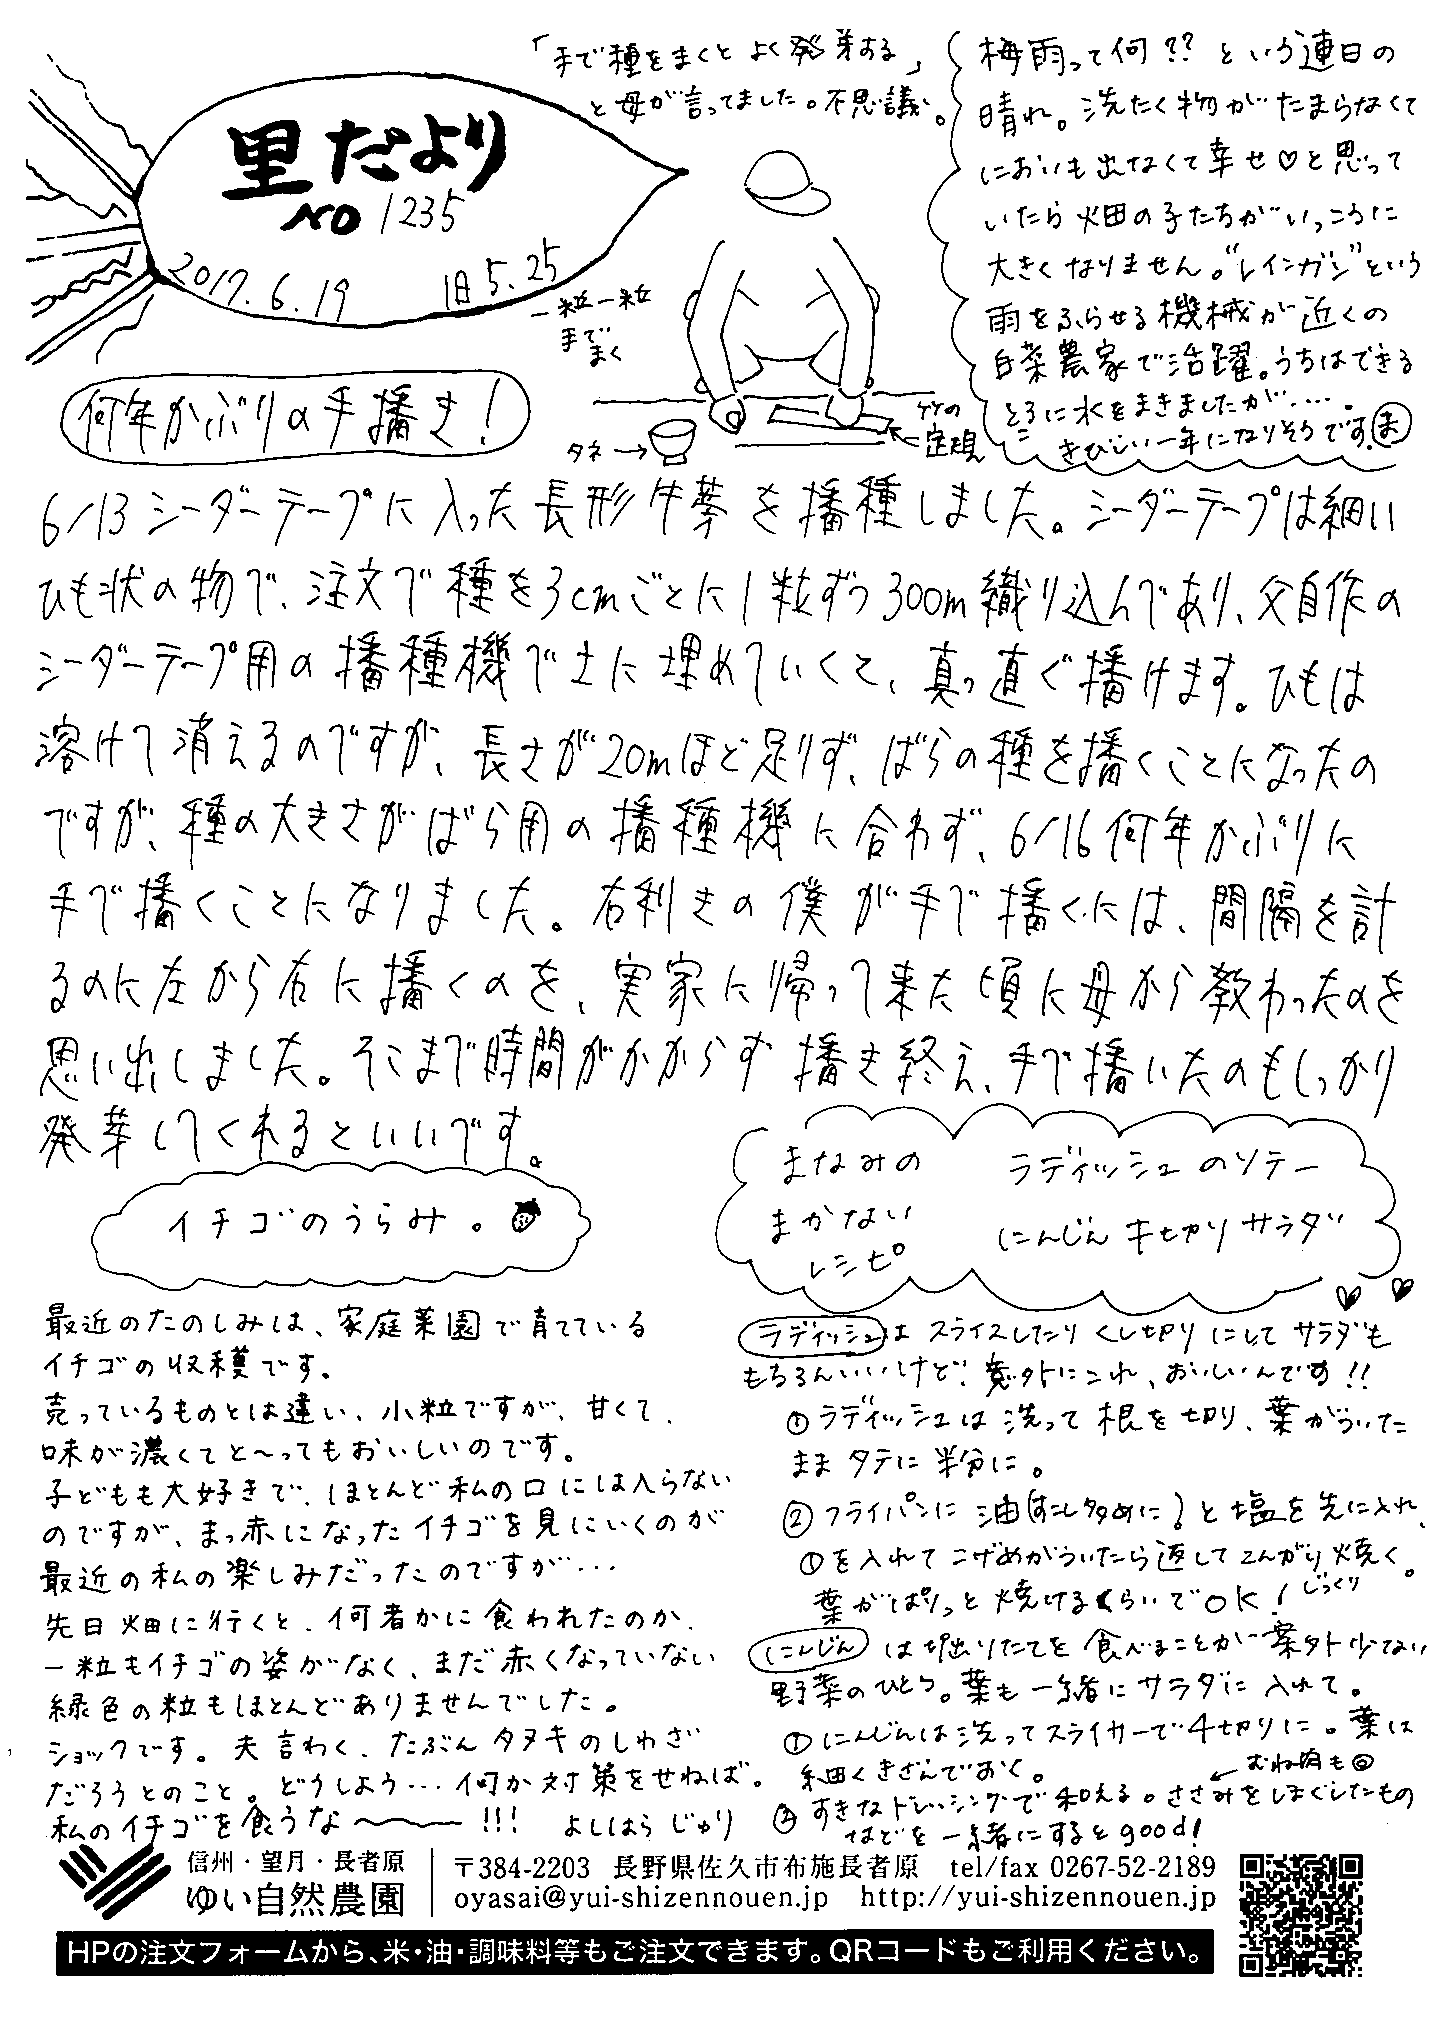 里だより
NO 1235
2017.6.19 旧5.25
「手で種をまくとよく発芽する」
と母が言ってました。不思議。
一粒一粒
手で
まく
タネ→
竹の
定規
梅雨って何?? という連日の
晴れ。洗たく物がたまらなくて
においも出なくて幸せ♡と思って
いたら畑の子たちがいっこうに
大きくなりません。“レインガン”という
雨をふらせる機械が近くの
白菜農家で活躍。うちはできる
ところに水をまきましたが‥‥。
きびしい一年になりそうです。ま
何年かぶりの手播き!
6/13 シーダーテープに入った長形牛蒡を播種しました。シーダーテープは細い
ひも状の物で、注文で種を3cmごとに1粒ずつ300m織り込んであり、父自作の
シーダーテープ用の播種機で土に埋めていくと、真っ直ぐ播けます。ひもは
溶けて消えるのですが、長さが20mほど足りず、ばらの種を播くことになったの
ですが、種の大きさがばら用の播種機に合わず、6/16何年かぶりに
手で播くことになりました。右利きの僕が手で播くには、間隔を計
るのに左から右に播くのを、実家に帰って来た頃に母から教わったのを
思い出しました。そこまで時間がかからず播き終え、手で播いたのもしっかり
発芽してくれるといいです。
イチゴのうらみ。
最近のたのしみは、家庭菜園で育てている
イチゴの収穫です。
売っているものとは違い、小粒ですが、甘くて、
味が濃くてと〜ってもおいしいのです。
子どもも大好きで、ほとんど私の口には入らない
のですが、まっ赤になったイチゴを見にいくのが
最近の私の楽しみだったのですが…
先日畑に行くと、何者かに食われたのか、
一粒もイチゴの姿がなく、まだ赤くなっていない
緑色の粒もほとんどありませんでした。
ショックです。夫言わく、たぶんタヌキのしわざ
だろうとのこと。どうしよう… 何か対策をせねば。
私のイチゴを食うな〜〜!!! よしはらじゅり
まなみの
まかない
レシピ
ラディッシュのソテー
にんじん千切りサラダ
ラディッシュは スライスしたり くし切りにして サラダも
もちろんいいけど、意外にこれ、おいしいんです!!
①ラディッシュは 洗って 根を切り、葉がついた
まま タテに半分に。
②フライパンに 油(すこし多めに)と塩を先に入れ、
①を入れて こげめがついたら返してこんがり焼く。
じっくり
葉がぱりっと焼けるくらいでOK!
にんじん は 堀出りたてを 食べることが案外少ない
野菜のひとつ。葉も一緒にサラダに入れて。
①にんじんは洗ってスライサーで千切りに。葉は
細くきざんでおく。
むね肉も◎
②すきなドレッシングで和える。ささみをほぐしたもの
などを一緒にするとgood!
信州・望月・長者原
ゆい自然農園
〒384-2203 長野県佐久市布施長者原 tel/fax 0267-52-2189
oyasai@yui-shizennouen.jp http://yui-shizennouen.jp
HPの注文フォームから、米・油・調味料等もご注文できます。QRコードもご利用ください。